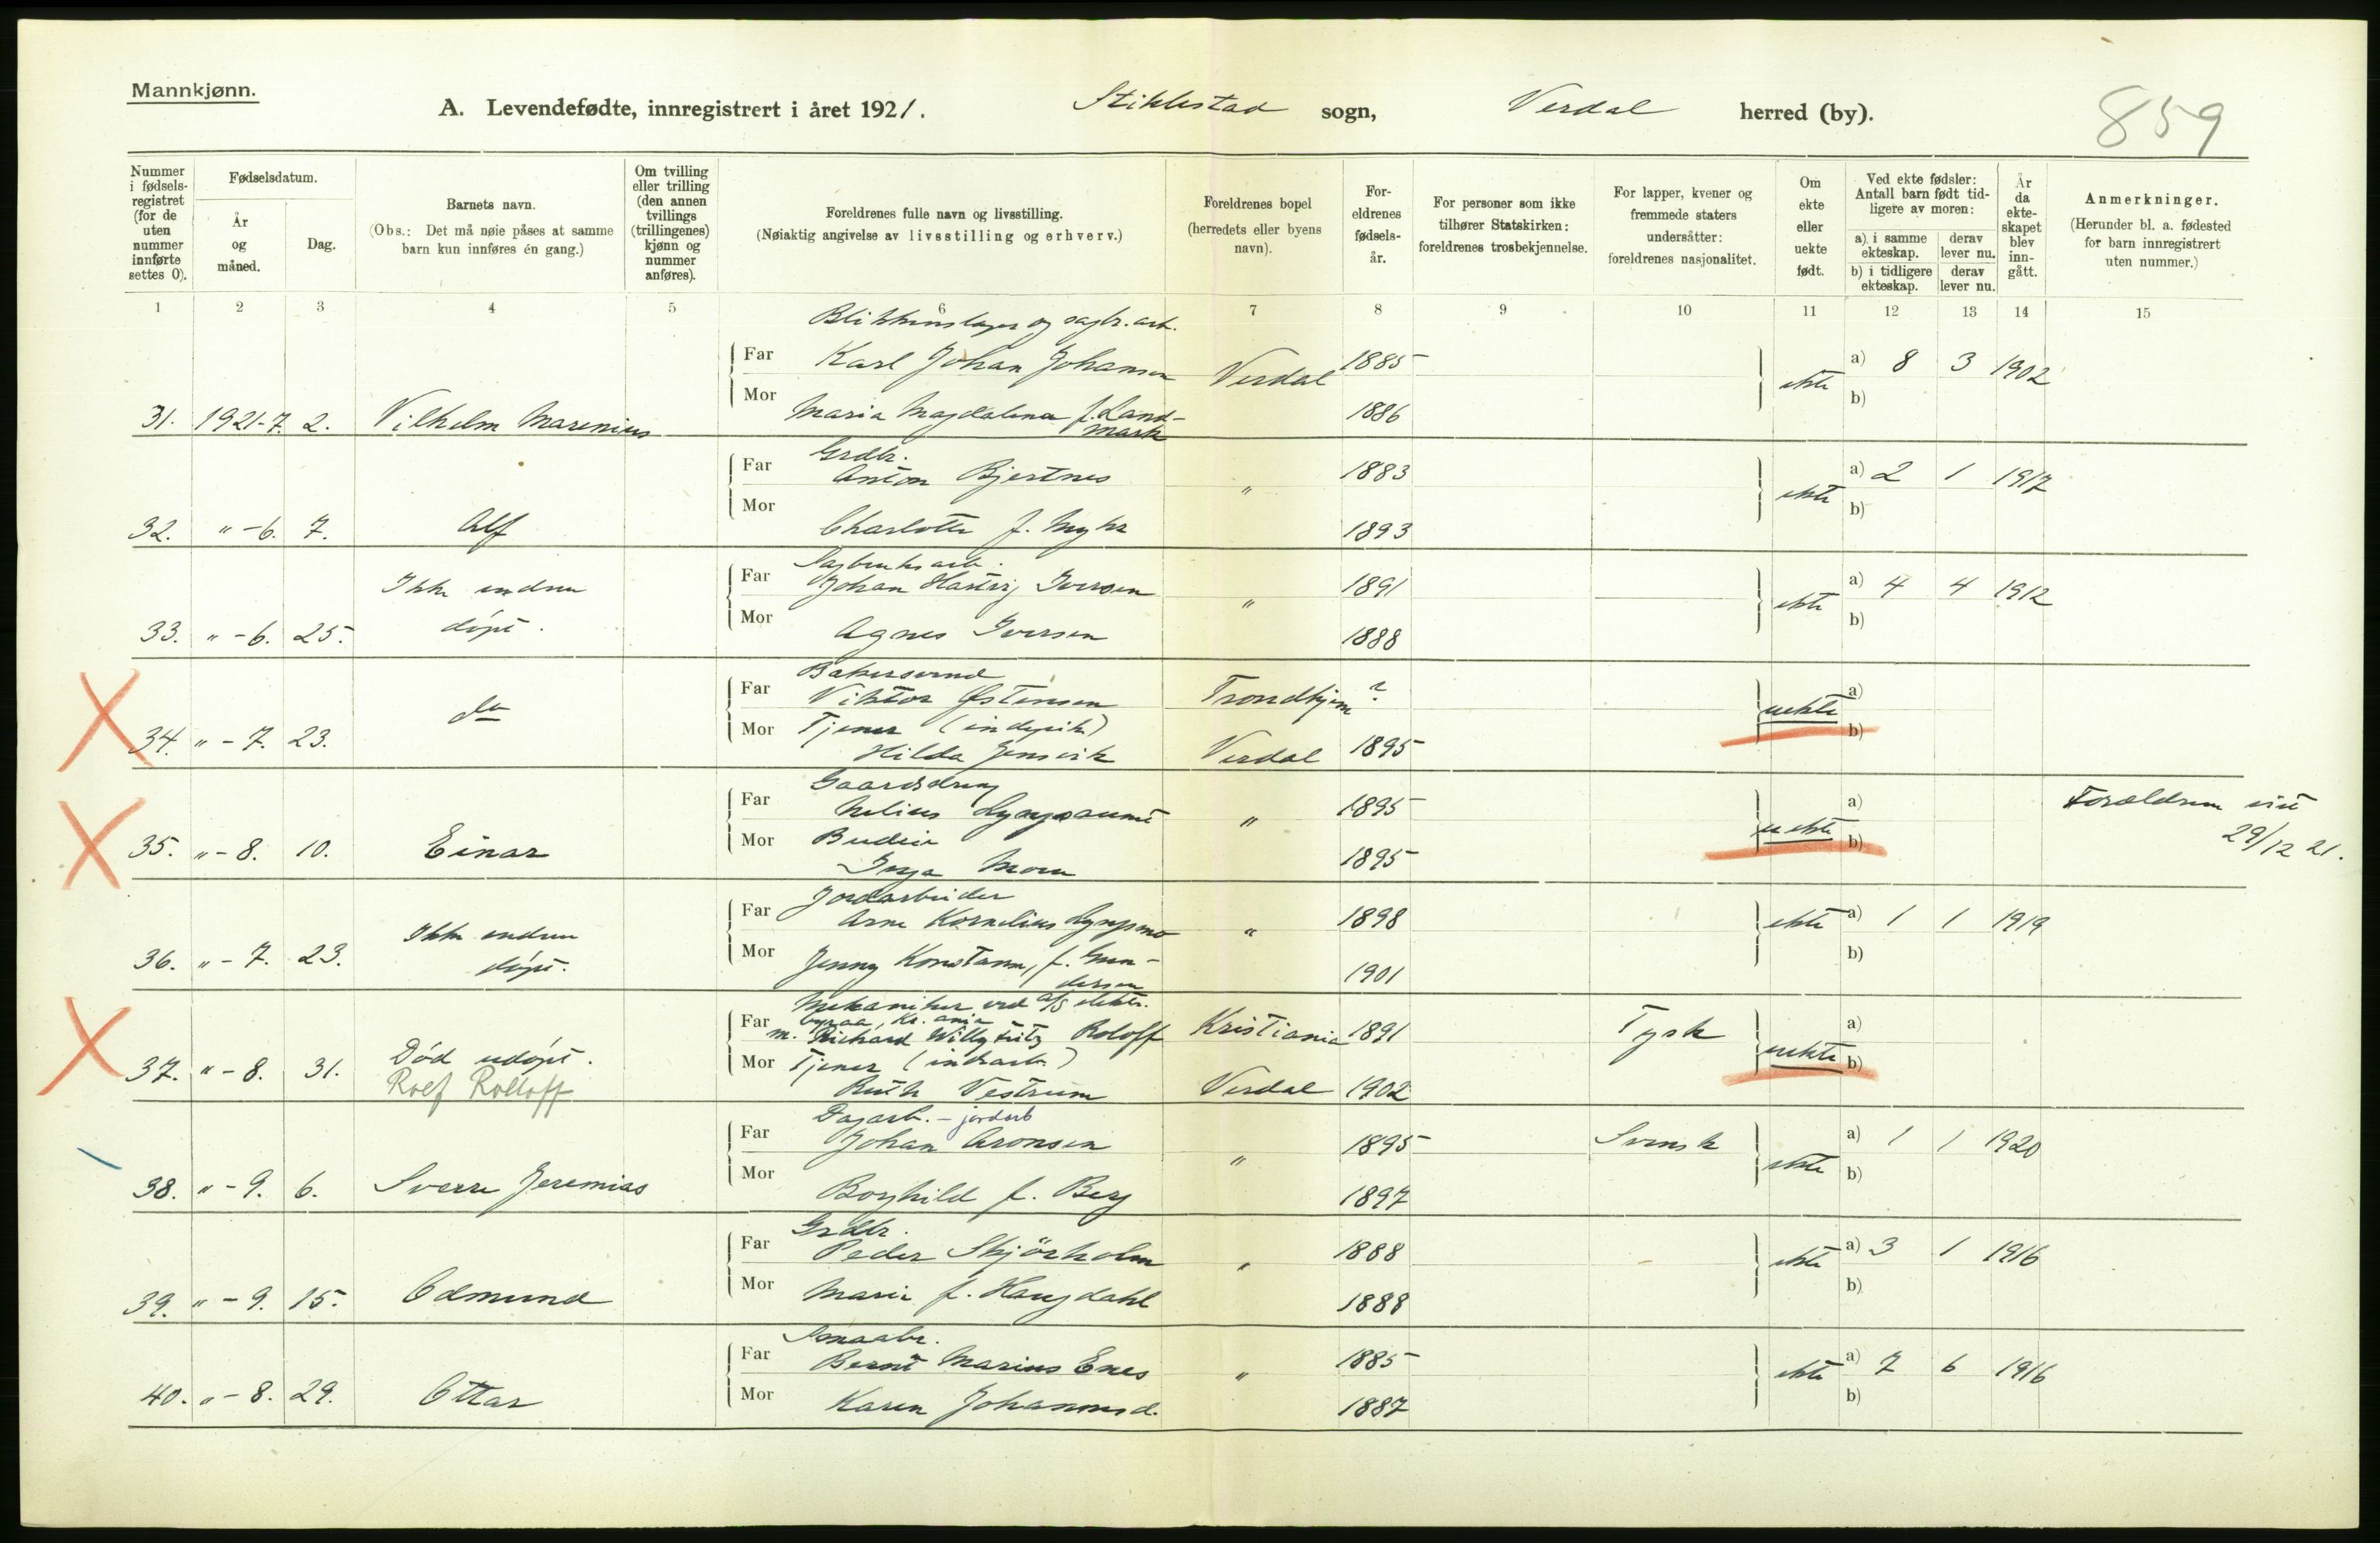 Mannkjønn.
A. Levendefødte, innregistrert i året 1921. Stiklestad sogn, Verdal herred (by). 859
Nummer i fødsels-registret (for de uten nummer innførte settes 0).
Fødselsdatum.
År og måned.
Dag.
Barnets navn.
(Obs.: Det må nøie påses at samme barn kun innføres én gang.)
Om tvilling eller trilling (den annen tvillings (trillingenes) kjønn og nummer anføres).
Foreldrenes fulle navn og livsstilling.
(Nøiaktig angivelse av livsstilling og erhverv.)
Foreldrenes bopel (herredets eller byens navn).
For-eldrenes fødsels-år.
For personer som ikke tilhører Statskirken: foreldrenes trosbekjennelse.
For lapper, kvener og fremmede staters undersåtter: foreldrenes nasjonalitet.
Om ekte eller uekte født.
Ved ekte fødsler: Antall barn født tid-ligere av moren:
a) i samme ekteskap. derav lever nu.
b) i tidligere ekteskap. derav lever nu.
År da ekte-skapet blev inn-gått.
Anmerkninger.
(Herunder bl. a. fødested for barn innregistrert uten nummer.)
1 2 3 4 5 6 7 8 9 10 11 12 13 14 15
Blikkenslager og sagbr.arb.
Far Karl Johan Johansen Verdal 1885 ekte a) 8 3 1902
Mor Maria Magdalena f. Land-mark 1886 b)
31. 1921-7. 2. Vilhelm Marenius
Grdbr.
Far Anton Bjertnes " 1883 ekte a) 2 1 1917
Mor Charlotte f. Myhr 1893 b)
32. "-6. 7. Alf
Sagbruksarb.
Far Johan Hartvig Iversen " 1891 ekte a) 4 4 1912
Mor Agnes Iversen 1888 b)
33. "-6. 25. Ikke endnu døpt.
Bakersvend
Far Viktor Østensen Trondhjem ? uekte a)
Mor Tjener (indepike)
Hilda Jensvik Verdal 1895 b)
34. "-7. 23. do
Gaardsdreng
Far Nelius Lyngsaunet " 1895 uekte a) Forældrene viet 29/12 21.
Mor Budeie
Inga Moen 1895 b)
35. "-8. 10. Einar
Jordarbeider
Far Arne Kornelius Lyngsmo " 1898 ekte a) 1 1 1919
Mor Jenny Konstanse, f. Gun-dersen 1901 b)
36. "-7. 23. Ikke endnu døpt.
Mekaniker ved A/S elektr. byraa, Kr.ania
Far m. Richard Willy Fritz Roloff Kristiania 1891 Tysk uekte a)
Mor Tjener (indearb.)
Ruth Vestrum Verdal 1902 b)
37. "-8. 31. Død udøpt.
Rolf Rolloff
Dagarb. - jordarb
Far Johan Aronsen " 1895 Svensk ekte a) 1 1 1920
Mor Borghild f. Berg 1897 b)
38. "-9. 6. Sverre Jeremias
Grdbr.
Far Peder Skjörholm " 1888 ekte a) 3 1 1916
Mor Marie f. Haugdahl 1888 b)
39. "-9. 15. Edmund
Smaabr.
Far Bernt Marius Enes " 1885 ekte a) 7 6 1916
Mor Karen Johannesd. 1887 b)
40. "-8. 29. Ottar